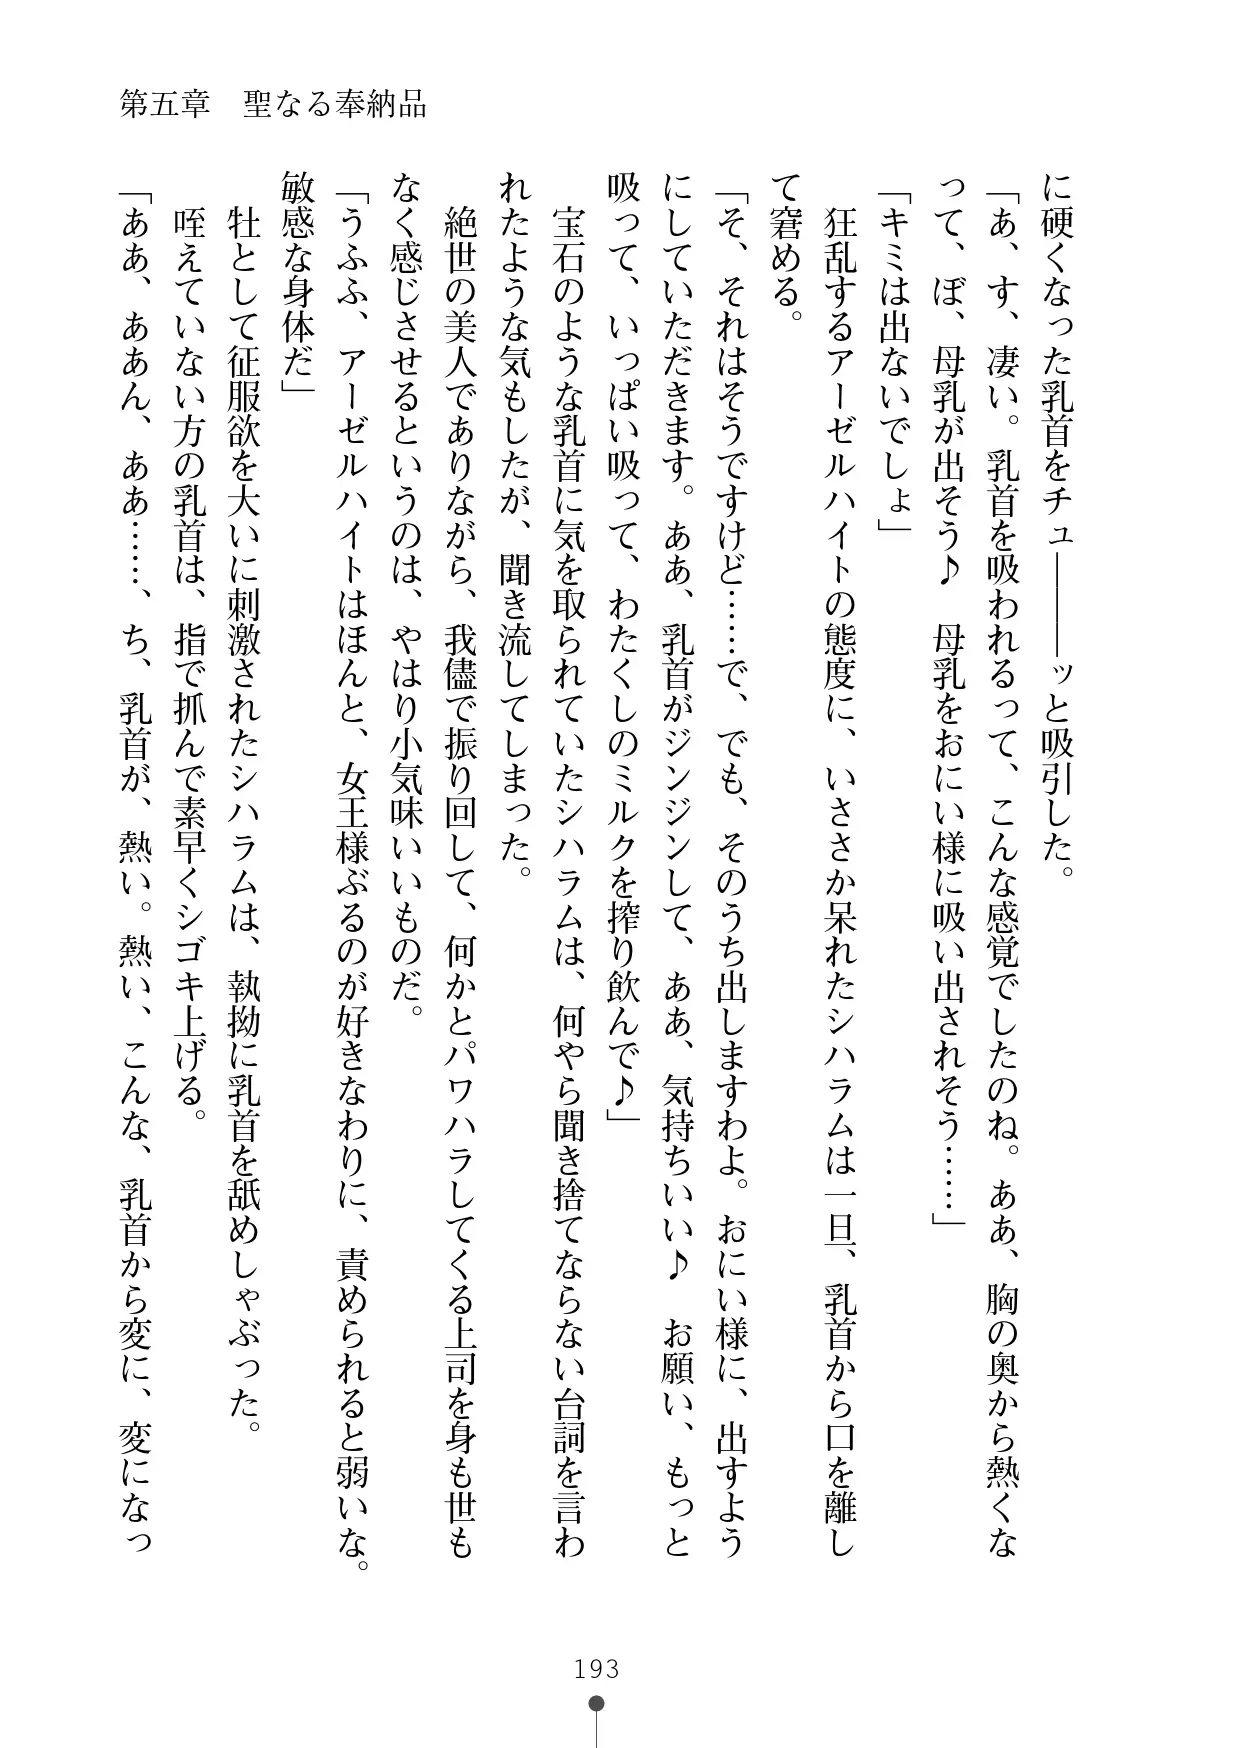 第五章　聖なる奉納品
に硬くなった乳首をチュ―――ッと吸引した。
「あ、す、凄い。乳首を吸われるって、こんな感覚でしたのね。ああ、胸の奥から熱くな
って、ぼ、母乳が出そう♪　母乳をおにい様に吸い出されそう……」
「キミは出ないでしょ」
　狂乱するアーゼルハイトの態度に、いささか呆れたシハラムは一旦、乳首から口を離し
て窘める。
「そ、それはそうですけど……で、でも、そのうち出しますわよ。おにい様に、出すよう
にしていただきます。ああ、乳首がジンジンして、ああ、気持ちいい♪　お願い、もっと
吸って、いっぱい吸って、わたくしのミルクを搾り飲んで♪」
　宝石のような乳首に気を取られていたシハラムは、何やら聞き捨てならない台詞を言わ
れたような気もしたが、聞き流してしまった。
　絶世の美人でありながら、我儘で振り回して、何かとパワハラしてくる上司を身も世も
なく感じさせるというのは、やはり小気味いいものだ。
「うふふ、アーゼルハイトはほんと、女王様ぶるのが好きなわりに、責められると弱いな。
敏感な身体だ」
　牡として征服欲を大いに刺激されたシハラムは、執拗に乳首を舐めしゃぶった。
　咥えていない方の乳首は、指で抓んで素早くシゴキ上げる。
「ああ、ああん、ああ……、ち、乳首が、熱い。熱い、こんな、乳首から変に、変になっ
193